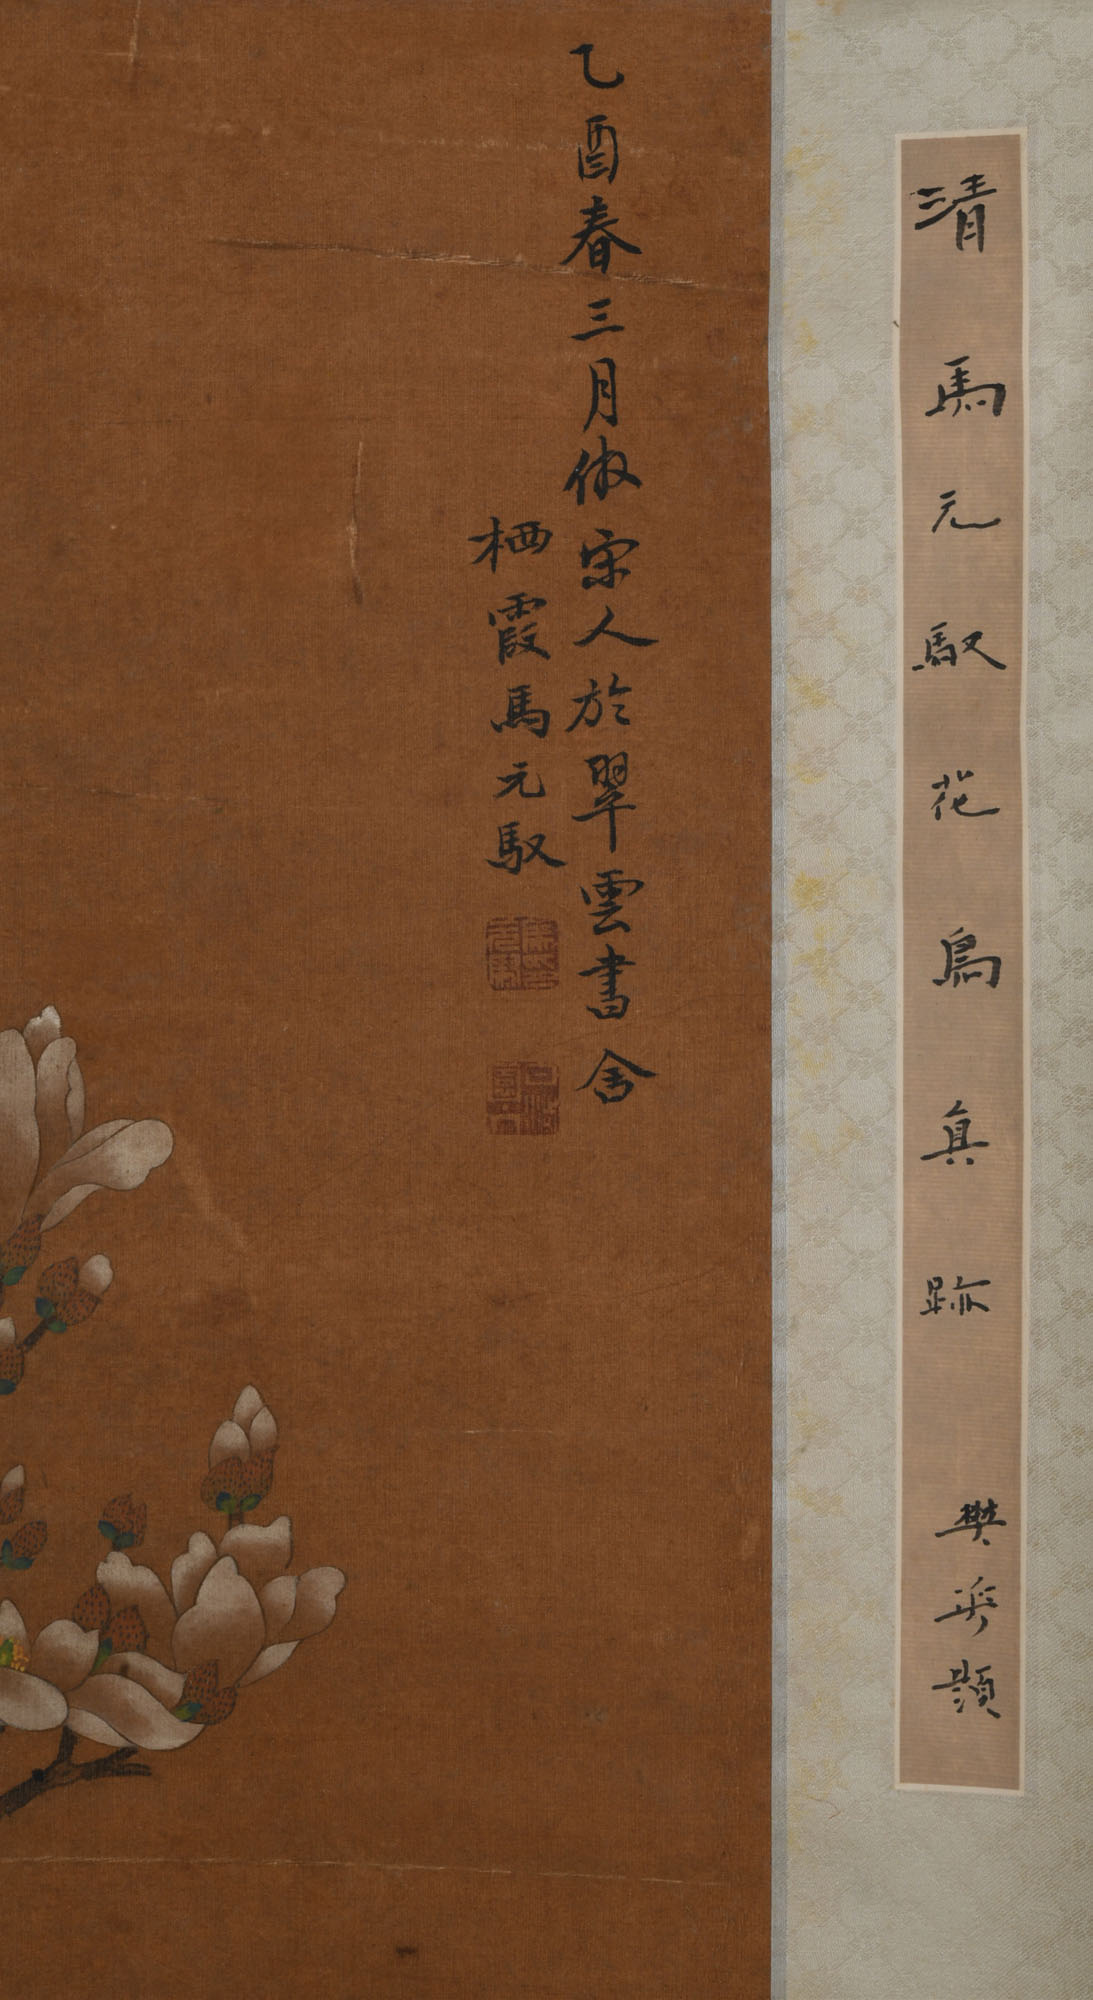 清馬元馭花鳥真跡
樊
題
乙酉春三月倣宋人於翠雲書舍
栖霞馬元馭